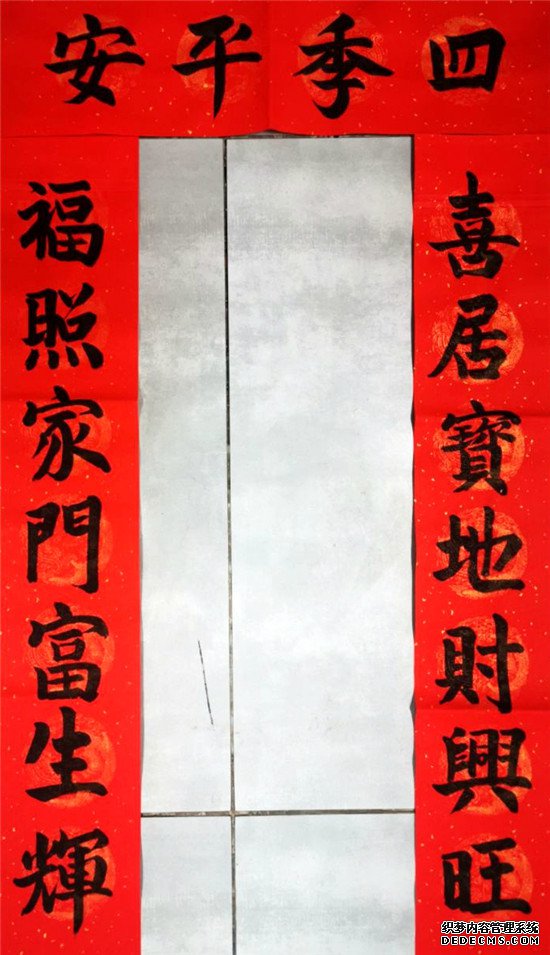 四季平安
喜居寶地財興旺
福照家門富生輝
织梦内容管理系统
DEDECMS.COM